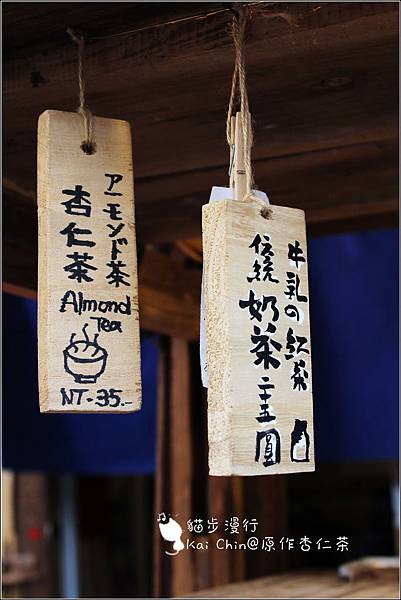 アーモンド茶
杏仁茶
Almond
Tea
NT-35.-
牛乳の紅茶
伝統奶茶二十五圓
貓步漫行
Kai Chin@原作杏仁茶